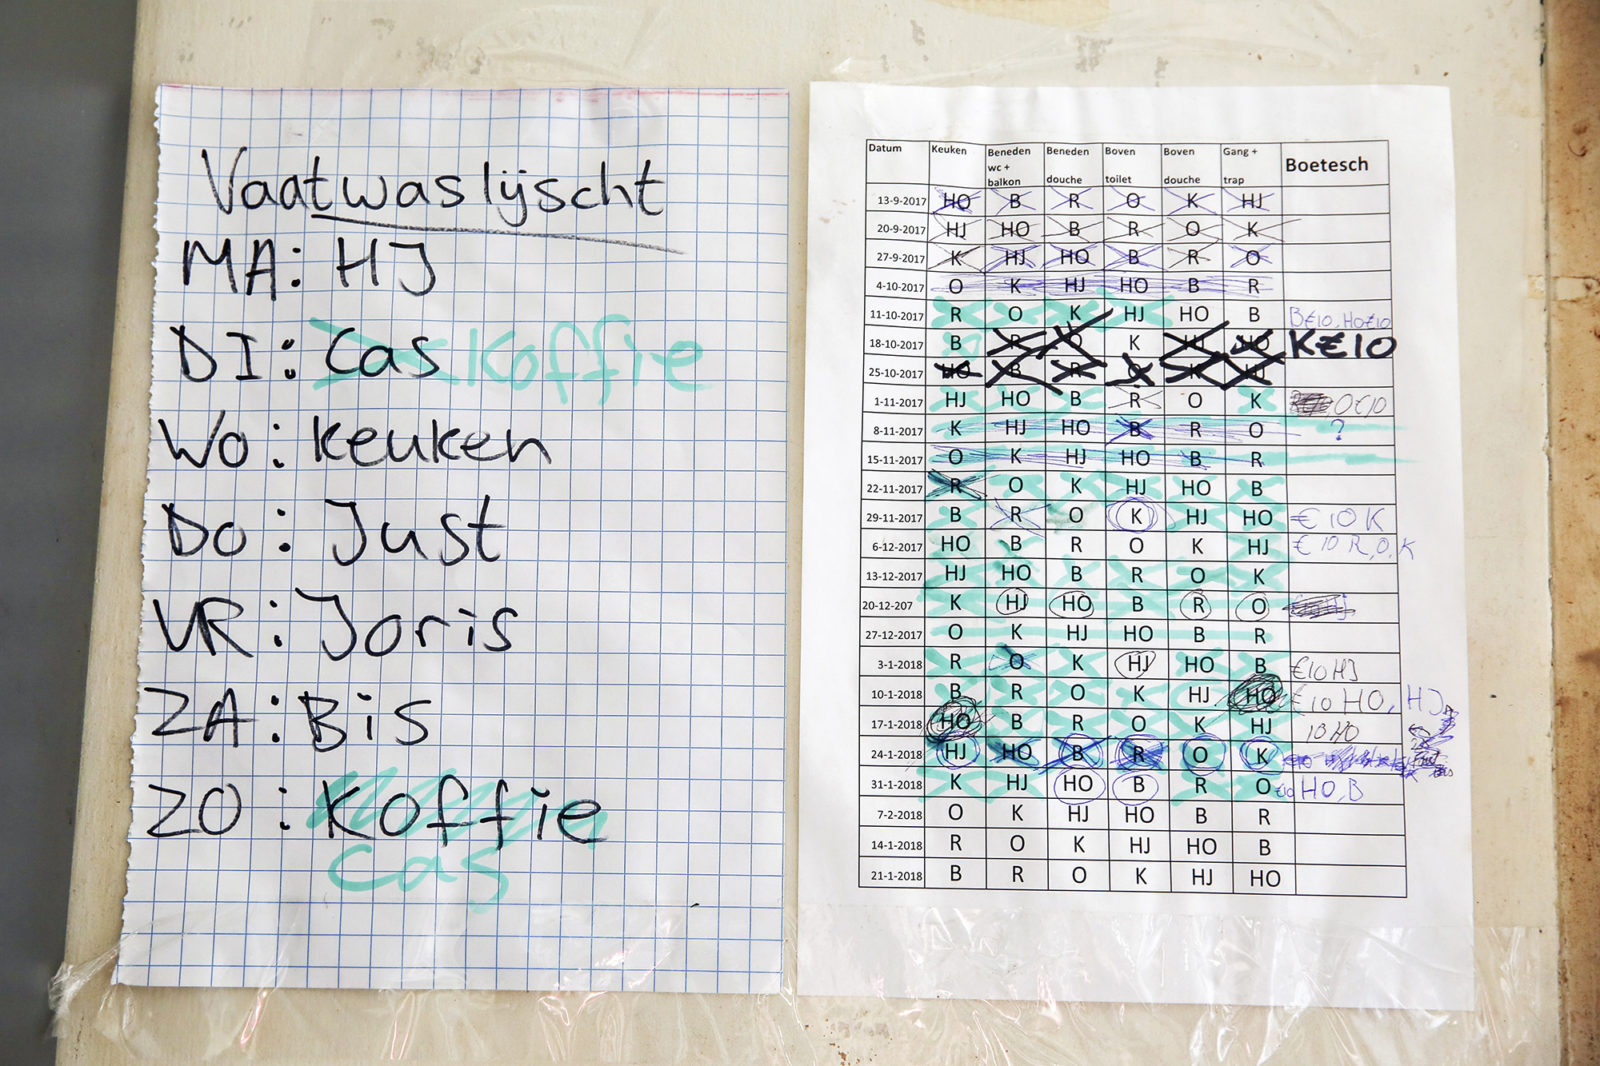 Vaatwaslijscht
MA: HJ
DI: Cas Koffie
WO: Keuken
DO: Just
VR: Joris
ZA: Bis
ZO: Koffie
Cas
Datum Keuken Beneden wc + balkon Beneden douche Boven toilet Boven douche Gang + trap Boetesch
13-9-2017 HO B R O K HJ
20-9-2017 HJ HO B R O K
27-9-2017 K HJ HO B R O
4-10-2017 O K HJ HO B R
11-10-2017 R O K HJ HO B B€10, HO€10
18-10-2017 B R O K HJ HO K€10
25-10-2017 HO B R O K HJ
1-11-2017 HJ HO B R O K O€10
8-11-2017 K HJ HO B R O ?
15-11-2017 O K HJ HO B R
22-11-2017 R O K HJ HO B
29-11-2017 B R O K HJ HO €10 K
6-12-2017 HO B R O K HJ €10 R,O,K
13-12-2017 HJ HO B R O K
20-12-207 K HJ HO B R O
27-12-2017 O K HJ HO B R
3-1-2018 R O K HJ HO B €10 HJ
10-1-2018 B R O K HJ HO €10 HO, HJ
17-1-2018 HO B R O K HJ 10 HO
24-1-2018 HJ HO B R O K
31-1-2018 K HJ HO B R O €10 HO, B
7-2-2018 O K HJ HO B R
14-1-2018 R O K HJ HO B
21-1-2018 B R O K HJ HO